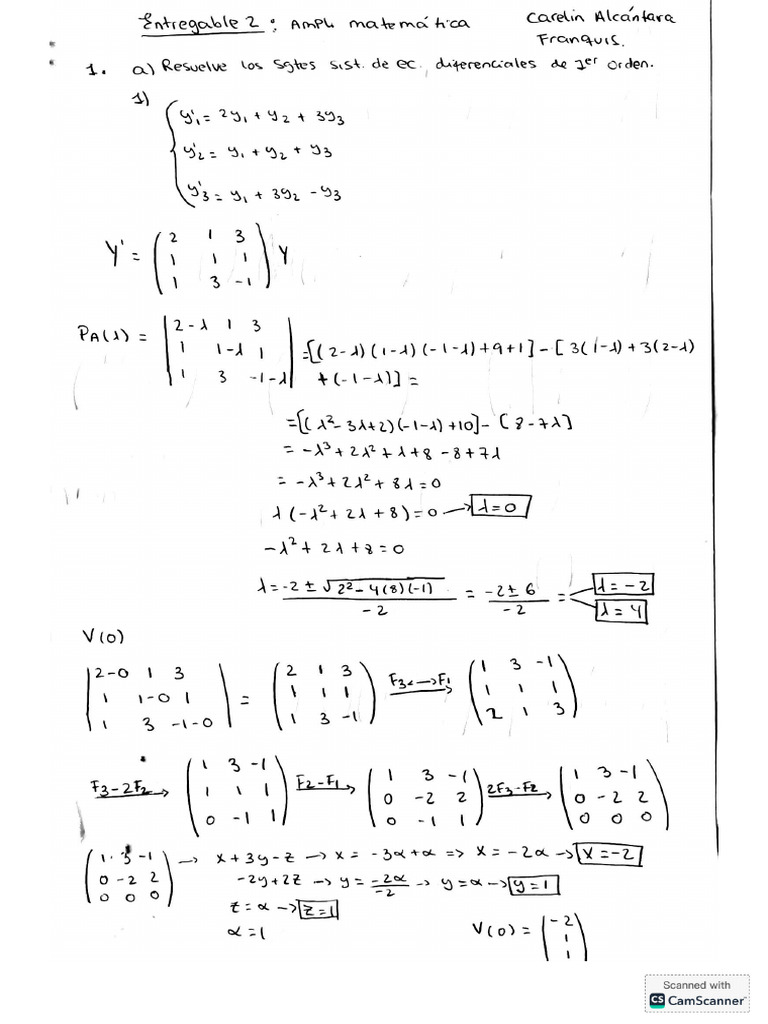 Entregable 2: Ampli matemática
Carelin Alcántara
Franquis.
1. a) Resuelve los Sgtes sist. de ec. diferenciales de 1er orden.
1)
y'1 = 2y1 + y2 + 3y3
y'2 = y1 + y2 + y3
y'3 = y1 + 3y2 - y3
Y' = (2 1 3
1 1 1
1 3 -1) Y
PA(λ) = |2-λ 1 3
1 1-λ 1
1 3 -1-λ| = [(2-λ)(1-λ)(-1-λ)+9+1] - [3(1-λ)+3(2-λ)
+(-1-λ)] =
= [(λ²-3λ+2)(-1-λ)+10] - [8-7λ]
= -λ³+2λ²+λ+8-8+7λ
= -λ³+2λ²+8λ=0
λ(-λ²+2λ+8)=0 → λ=0
-λ²+2λ+8=0
λ = -2 ± √2²-4(8)(-1) / -2 = -2±6 / -2 = λ=-2
λ=4
V(0)
|2-0 1 3
1 1-0 1
1 3 -1-0| = (2 1 3
1 1 1
1 3 -1) F3↔F1 (1 3 -1
1 1 1
2 1 3)
F3-2F2 → (1 3 -1
1 1 1
0 -1 1) F2-F1 → (1 3 -1
0 -2 2
0 -1 1) 2F3-F2 → (1 3 -1
0 -2 2
0 0 0)
(1 3 -1
0 -2 2
0 0 0) → x+3y-z → x = -3α+α => x=-2α → x=-2
-2y+2z → y = -2α/-2 → y=α → y=1
z=α → z=1
α=1
V(0) = (-2
1
1)
Scanned with
CS CamScanner